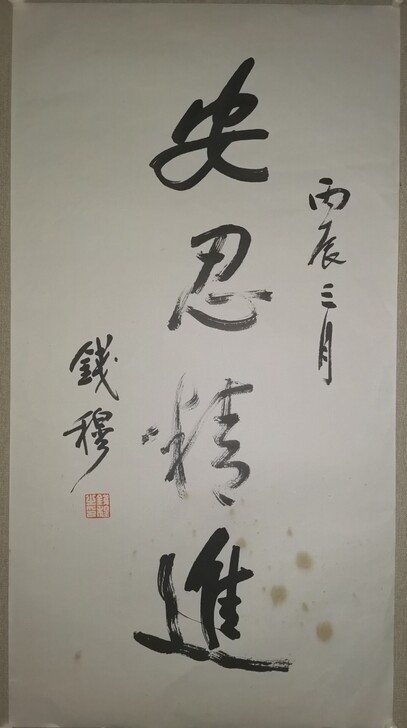 丙辰三月
安忍精進
錢穆